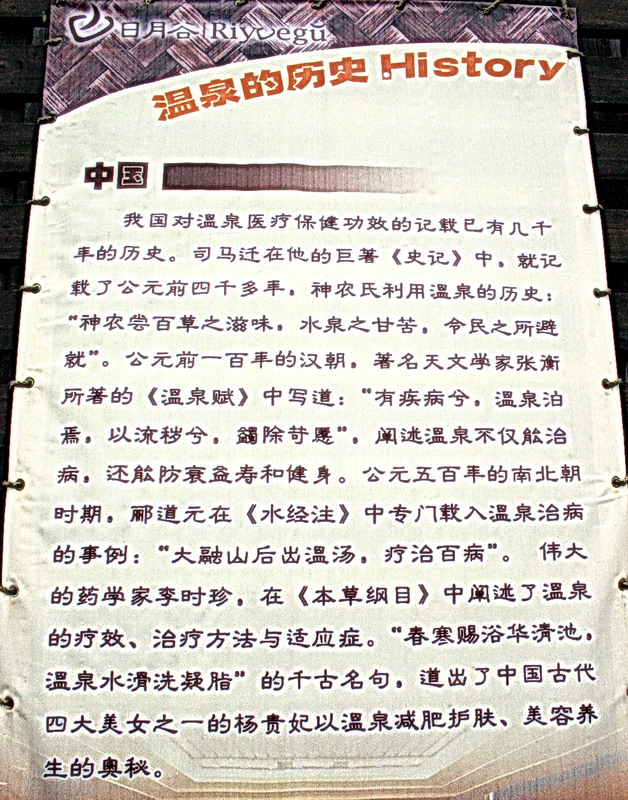 日月谷 Riyuegu
温泉的历史 History
中国
我国对温泉医疗保健功效的记载已有几千
年的历史。司马迁在他的巨著《史记》中，就记
载了公元前四千多年，神农氏利用温泉的历史：
“神农尝百草之滋味，水泉之甘苦，令民之所避
就”。公元前一百年的汉朝，著名天文学家张衡
所著的《温泉赋》中写道：“有疾病兮，温泉泊
焉，以流秽兮，蠲除苛慝”，阐述温泉不仅能治
病，还能防衰益寿和健身。公元五百年的南北朝
时期，郦道元在《水经注》中专门载入温泉治病
的事例：“大融山后出温汤，疗治百病”。伟大
的药学家李时珍，在《本草纲目》中阐述了温泉
的疗效、治疗方法与适应症。“春寒赐浴华清池，
温泉水滑洗凝脂”的千古名句，道出了中国古代
四大美女之一的杨贵妃以温泉减肥护肤、美容养
生的奥秘。